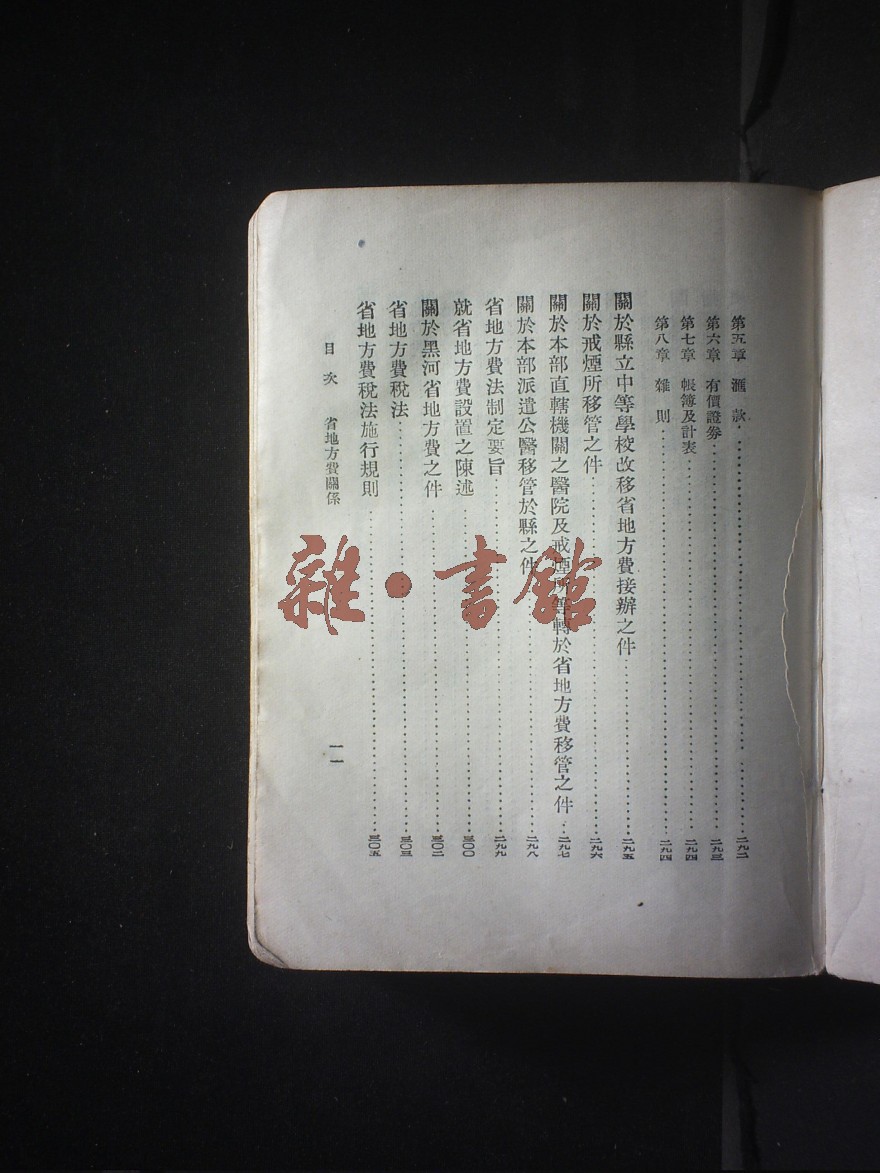 第五章 滙款…………二九二
第六章 有價證券…………二九三
第七章 帳簿及計表…………二九四
第八章 雜則…………二九四
關於縣立中等學校改移省地方費接辦之件…………二九五
關於戒煙所移管之件…………二九六
關於本部直轄機關之醫院及戒煙所等轉於省地方費移管之件…二九七
關於本部派遣公醫移管於縣之件…………二九八
省地方費法制定要旨…………二九九
就省地方費設置之陳述…………三〇〇
關於黑河省地方費之件…………三〇二
省地方費稅法…………三〇三
省地方費稅法施行規則…………三〇五
目次 省地方費關係
一一
雜·書館